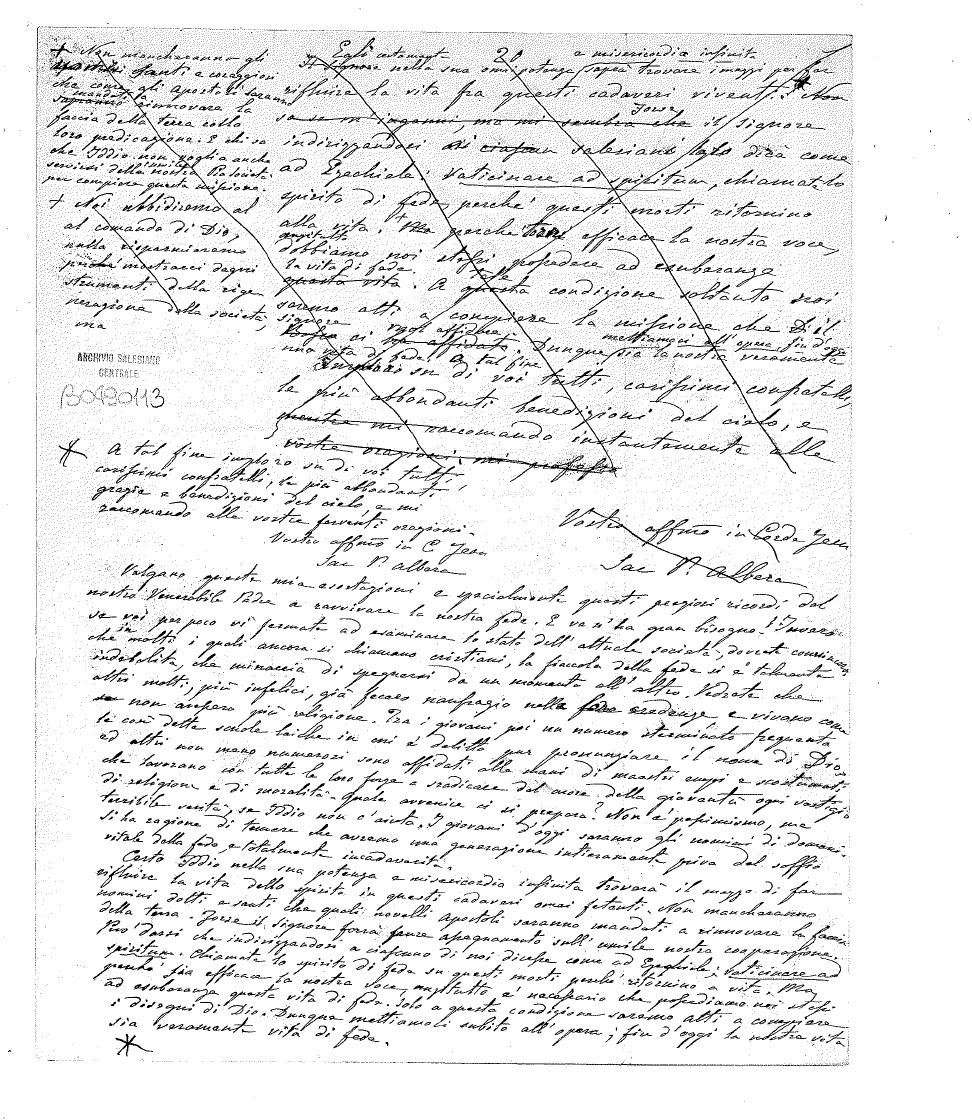 20
+ Non mancheranno gli
uomini santi e coraggiosi
che come gli Apostoli saranno
mandati
sapranno rinnovare la
faccia della terra colla
loro predicazione. E chi sa
che Iddio non voglia anche
servirsi della nostra umile Pia Società
per compiere questa missione.
+ Noi ubbidiremo al
al comando di Dio,
nulla risparmieremo
perché mostraci degni
strumenti della rige
nerazione della società,
ma
ARCHIVIO SALESIANO
CENTRALE
B0490113
Egli certamente e misericordia infinita
Signore nella sua onnipotenza saprà trovare i mezzi per far
rifluire la vita fra questi cadaveri viventi. Non
Forse
so se m'inganni, ma mi sembra che il Signore
indirizzandosi ai ciascun salesiano dirà come
ad Ezechiele: vaticinare ad spiritum, chiamate lo
spirito di fede, perché questi morti ritornino
alla vita! + Ma perché efficace la nostra voce,
anzitutto
dobbiamo noi stessi possedere ad esuberanza
la vita di fede.
tale
questa vita. A questa condizione soltanto noi
saremo atti a compiere la missione che il
Signore vuol affidare mettiamoci all'opera, fin d'oggi
ci ha affidato. Dunque sia la nostra veramente
una vita di fede. A tal fine
Imploro su di voi tutti, carissimi confratelli,
le più abbondanti benedizioni del cielo, e
mentre mi raccomando instantemente alle
vostre orazioni, mi professo
Vostro affmo in Corde Jesu
Sac P. Albera
* A tal fine imploro su di voi tutti,
carissimi confratelli, le più abbondanti
grazie e benedizioni del cielo e mi
raccomando alle vostre ferventi orazioni
Vostro affmo in C Jesu
Sac P. Albera
Valgano queste mie esortazioni e specialmente questi preziosi ricordi del
nostro Venerabile Padre a ravvivare la nostra fede. E ve n'ha gran bisogno! Invero
se voi per poco vi fermate ad esaminare lo stato dell'attuale società, dovete convincervi
che in molti i quali ancora si chiamano cristiani, la fiaccola della fede si è talmente
indebolita, che minaccia di spegnersi da un momento all'altro. Vedrete che
altri molti, più infelici, già fecero naufragio nella fede credenze e vivono come
se non avessero più religione. Tra i giovani poi un numero sterminato frequenta
le così dette scuole laiche in cui è delitto pur pronunziare il nome di Dio,
ed altri non meno numerosi sono affidati alle mani di maestri empi e scostumati
che lavorano con tutte le loro forze a sradicare dal cuore della gioventù ogni vestigio
di religione e di moralità. Quale avvenire ci si prepara? Non è pessimismo, ma
terribile verità, se Iddio non c'aiuta. I giovani d'oggi saranno gli uomini di domani.
Si ha ragione di temere che avremo una generazione intieramente priva del soffio
vitale della fede, e totalmente incadaverita.
Certo Iddio nella sua potenza e misericordia infinita troverà il mezzo di far
rifluire la vita dello spirito in questi cadaveri omai fetenti. Non mancheranno
uomini dotti e santi che quali novelli apostoli saranno mandati a rinnovare la faccia
della terra. Forse il Signore farà pure assegnamento sull'umile nostra cooperazione.
Può darsi che indirizzandosi a ciascuno di noi dicesse come ad Ezechiele: vaticinare ad
spiritum. Chiamate lo spirito di fede su questi morti perché ritornino a vita. Ma
perché sia efficace la nostra voce, anzitutto è necessario che possediamo noi stessi
ad esuberanza questa vita di fede. Solo a questa condizione saremo atti a compiere
i disegni di Dio. Dunque mettiamoci subito all'opera; fin d'oggi la nostra vita
sia veramente vita di fede.
*